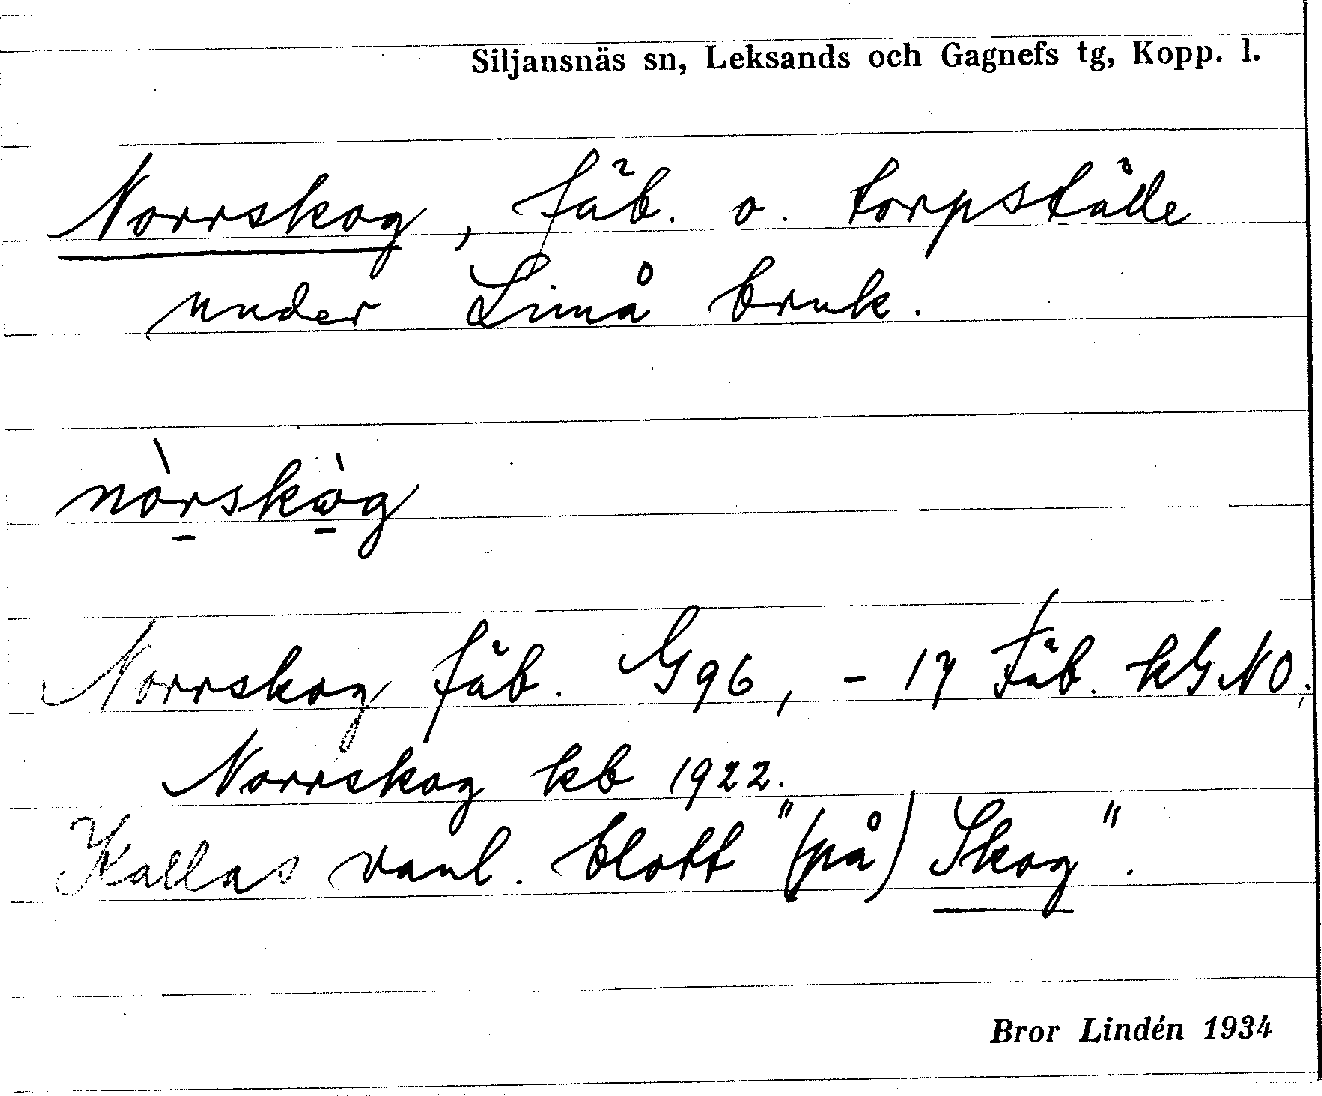 Siljansnäs sn, Leksands och Gagnefs tg, Kopp. l.
Norrskog, fäb. o. torpställe
under Limå bruk.
nòrskòg
Norrskog fäb. G96, – 17 Fäb. kG NO;
Norrskog kb 1922.
Kallas vanl. blott "(på) Skog".
Bror Lindén 1934